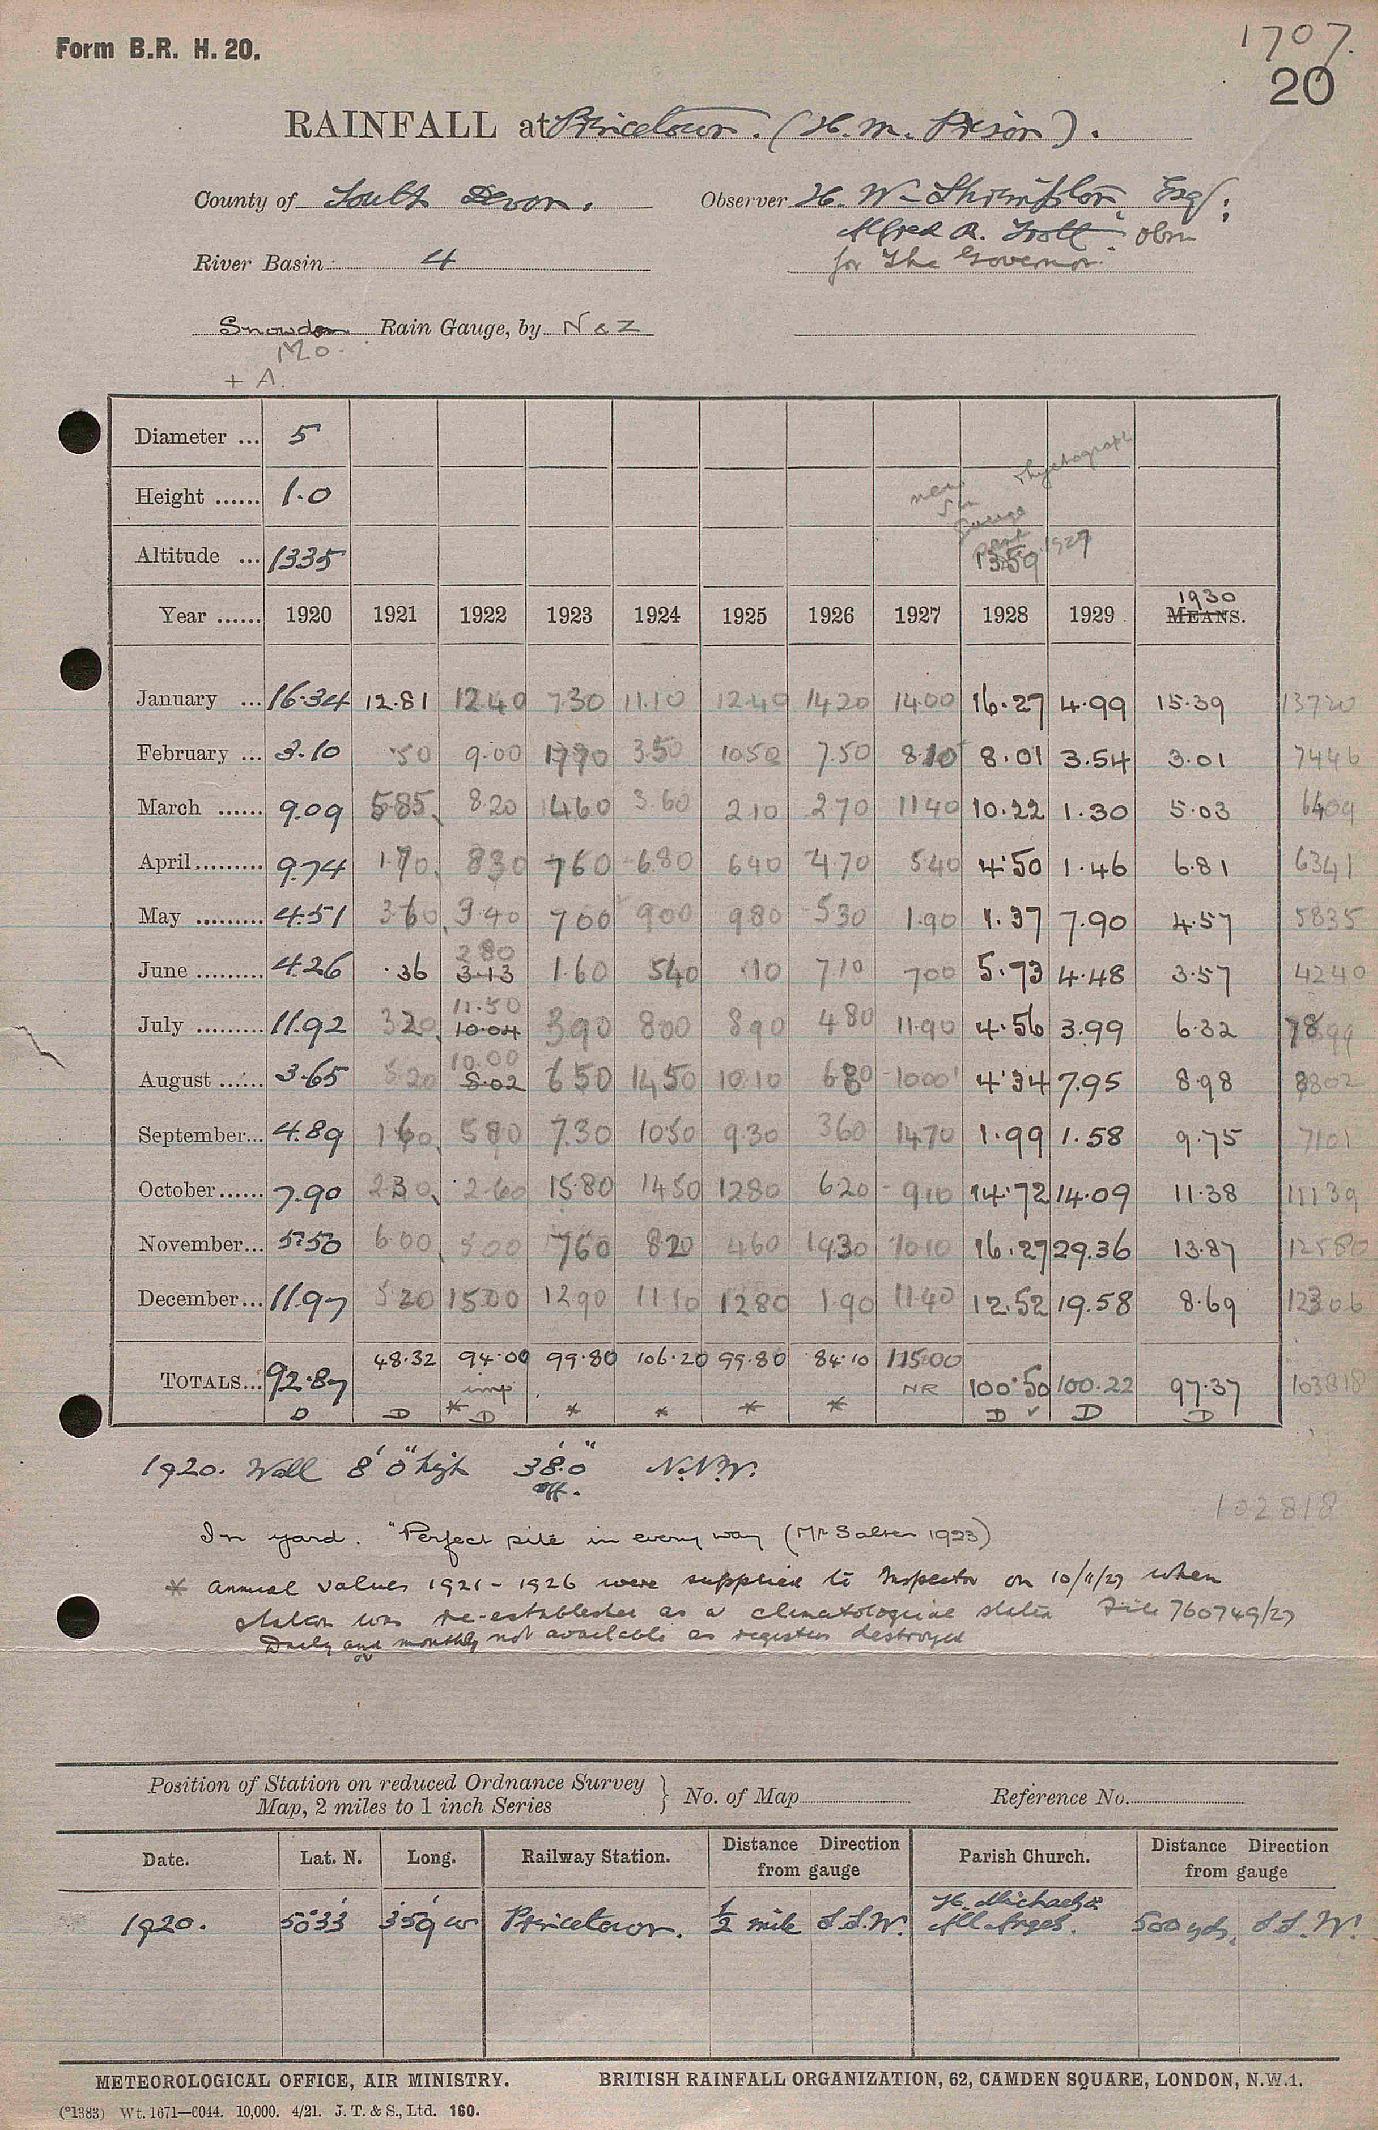 Form B.R. H. 20.
1707.
20
RAINFALL at Princetown. (H.M. Prison).
County of South Devon. Observer H. W. Shrimpton, Esq;
Alfred R. Trott. Obsr
River Basin 4 for The Governor.
Snowdon Rain Gauge, by N & Z
Mo.
+ A.
Diameter ... 5
Height ...... 1.0
new 5in Gauge
Altitude ... 1335 1350 1927
1930
Year ...... 1920 1921 1922 1923 1924 1925 1926 1927 1928 1929 MEANS.
January ... 16.34 12.81 12.40 7.30 11.10 12.40 14.20 14.00 16.27 4.99 15.39 13720
February ... 3.10 .50 9.00 17.70 3.50 10.50 7.50 8.10 8.01 3.54 3.01 7446
March ...... 9.09 5.85 8.20 14.60 3.60 2.10 2.70 11.40 10.22 1.30 5.03 6409
April ......... 9.74 1.70 8.30 7.60 6.80 6.40 4.70 5.40 4.50 1.46 6.81 6341
May ......... 4.51 3.60 3.40 7.00 9.00 9.80 5.30 1.90 1.37 7.90 4.57 5835
2.80
June ......... 4.26 .36 3.13 1.60 5.40 .10 7.10 7.00 5.73 4.48 3.57 4240
11.50
July ......... 11.92 3.20 10.04 3.90 8.00 8.90 4.80 11.90 4.56 3.99 6.32
10.00
August ...... 3.65 5.20 8.02 6.50 14.50 10.10 6.80 10.00 4.34 7.95 8.98 8802
September... 4.89 1.60 5.80 7.30 10.50 9.30 3.60 14.70 1.99 1.58 9.75 7101
October...... 7.90 2.30 2.60 15.80 14.50 12.80 6.20 9.10 14.72 14.09 11.38 11139
November... 5.50 6.00 5.00 7.60 8.20 4.60 19.30 10.10 16.27 29.36 13.87 12580
December... 11.97 5.20 15.00 12.90 11.10 12.80 1.90 11.40 12.52 19.58 8.69 12306
48.32 94.00 99.80 106.20 99.80 84.10 115.00
TOTALS... 92.87 imp NR 100.50 100.22 97.37 103818
D D * D * * * * D ✓ D D
1920. Wall 8' 0" high 38' 0" N.N.W.
off.
102818
In yard. "Perfect site in every way (Mr Salter 1923)
* Annual values 1921 - 1926 were supplied to Inspector on 10/11/27 when
station was re-established as a climatological station File 760749/27
Daily and monthly not available as registers destroyed
or
Position of Station on reduced Ordnance Survey
Map, 2 miles to 1 inch Series } No. of Map Reference No.
Date. Lat. N. Long. Railway Station. Distance Direction from gauge Parish Church. Distance Direction from gauge
St. Michael &
1920. 50°33' 3°59' W Princetown. ½ mile S.S.W. All Angels. 500 yds. S.S.W.
METEOROLOGICAL OFFICE, AIR MINISTRY. BRITISH RAINFALL ORGANIZATION, 62, CAMDEN SQUARE, LONDON, N.W.1.
(*1383) Wt. 1671—C044. 10,000. 4/21. J. T. & S., Ltd. 160.